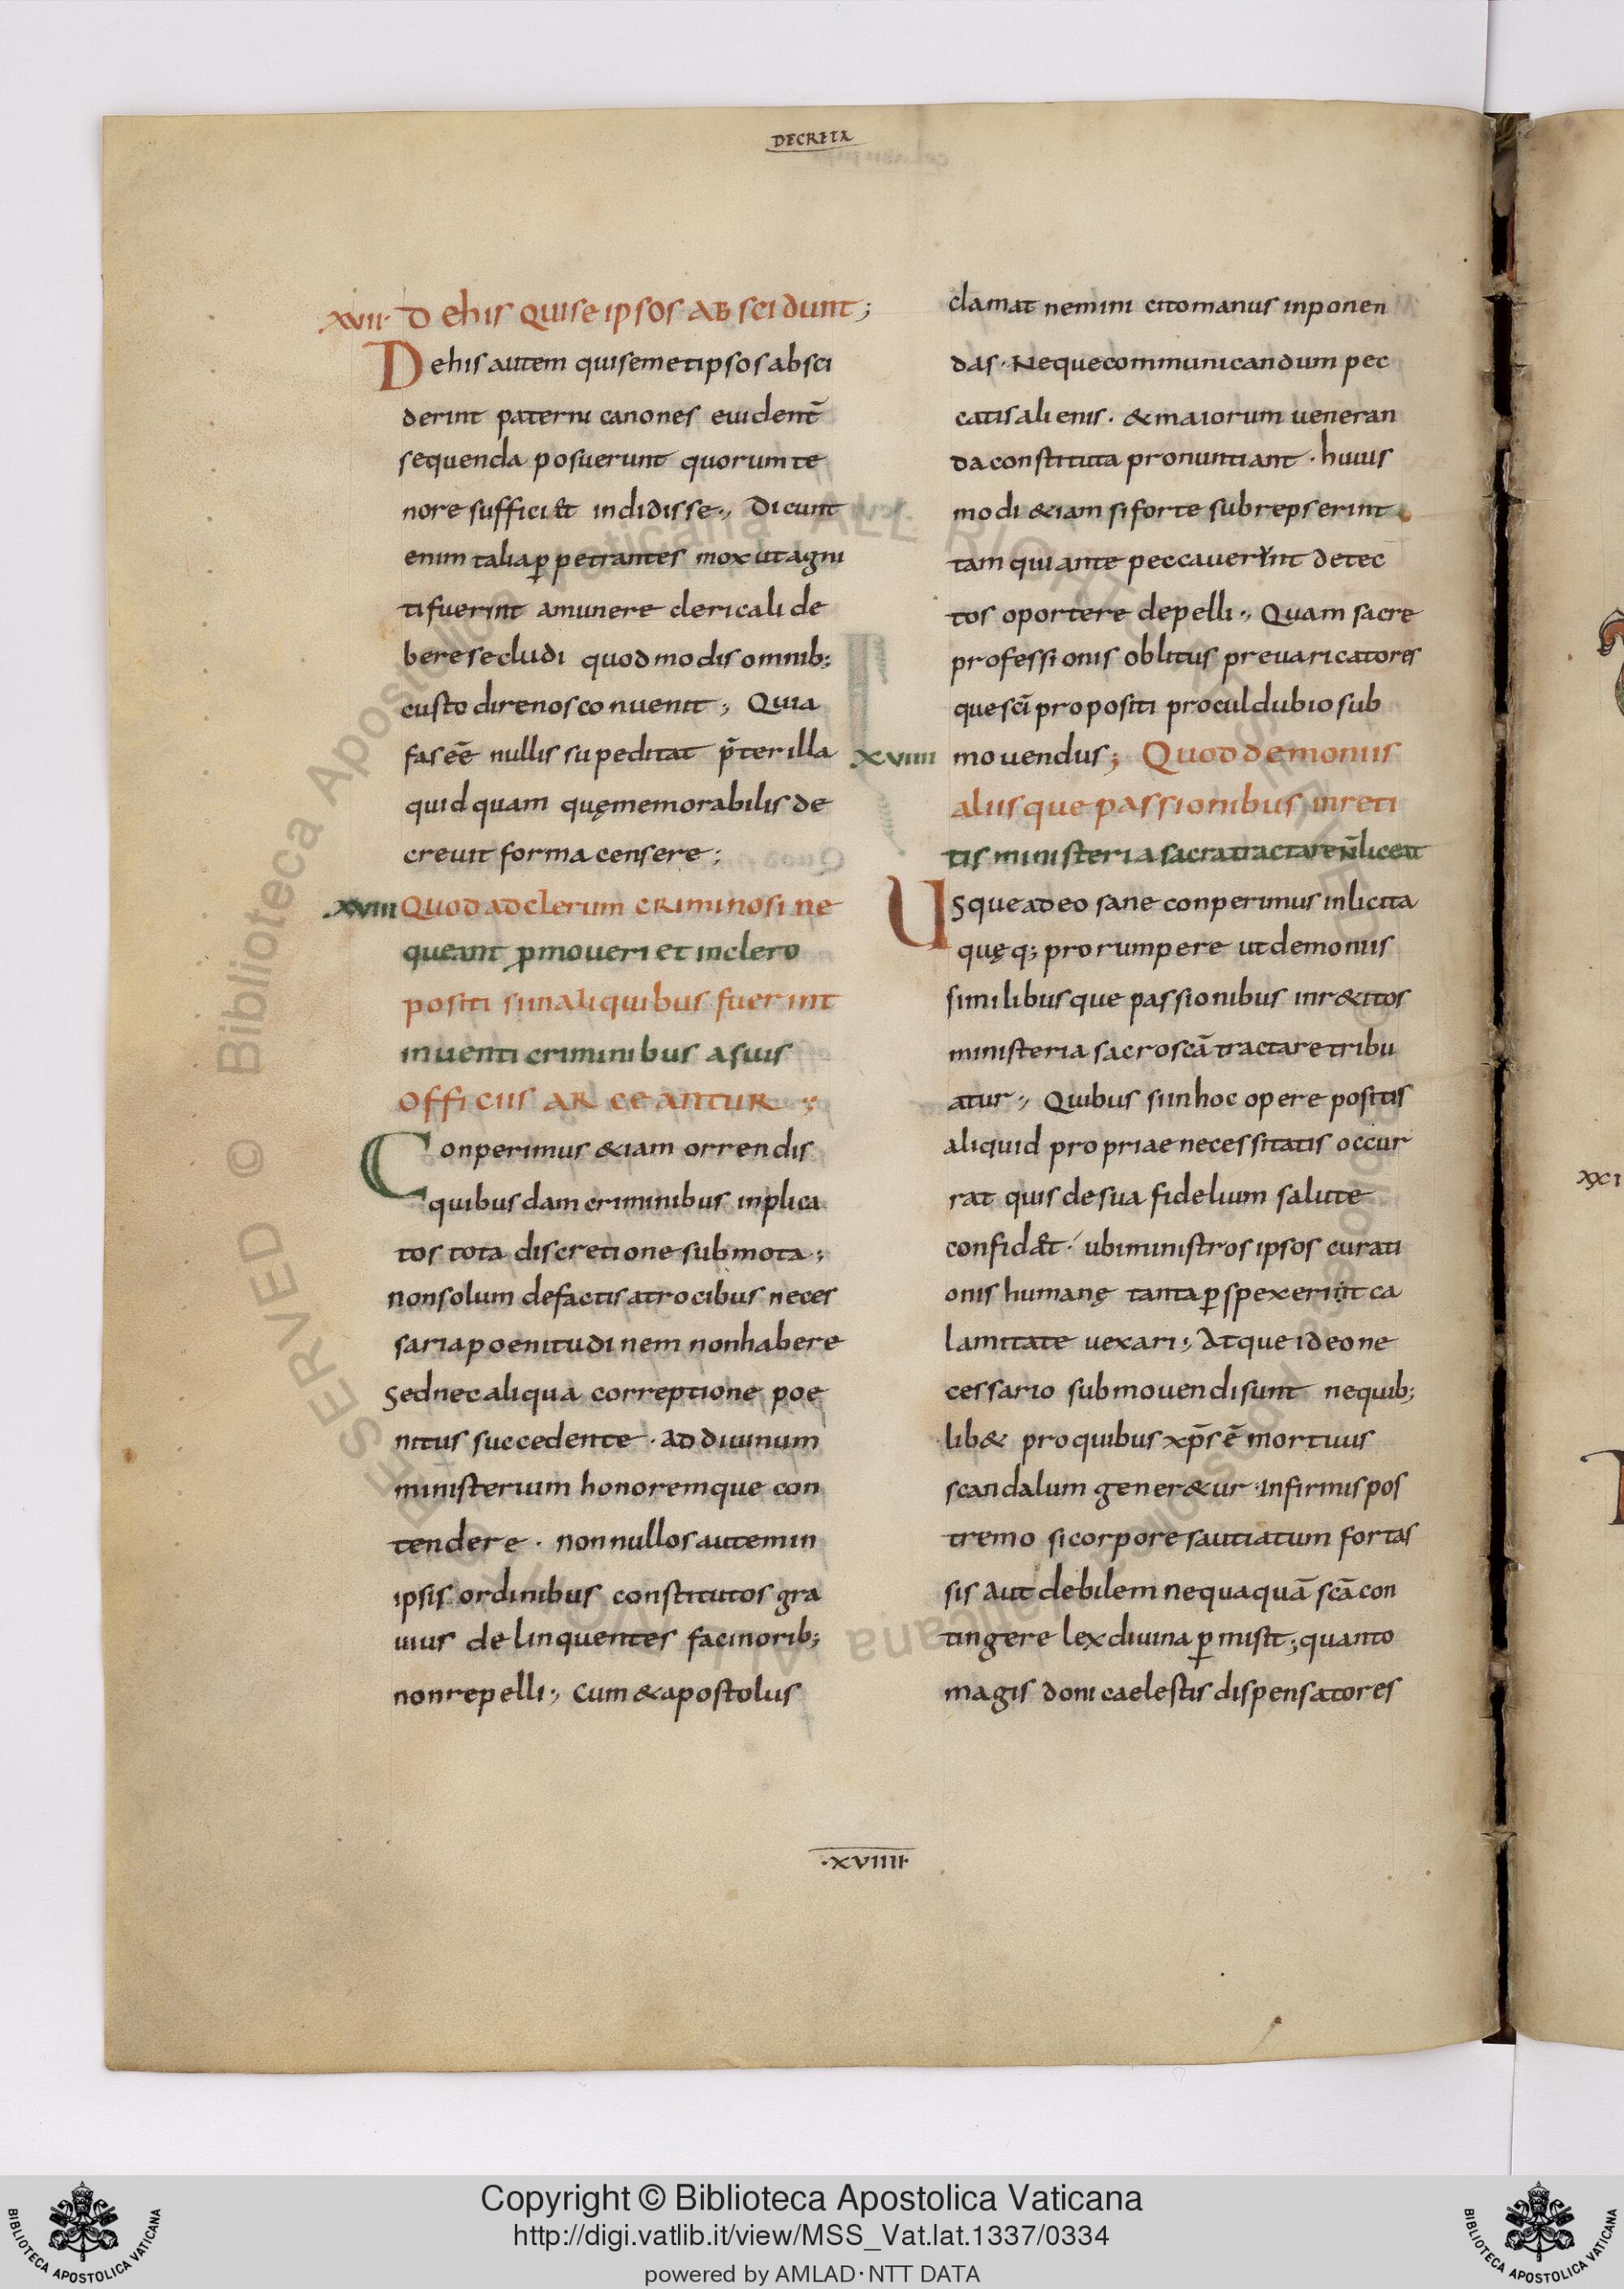 DECRETA
XVII· De his qui se ipsos abscidunt;
De his autem qui semetipsos absci
derint paterni canones euident̄
sequenda posuerunt quorum te
nore sufficiat indidisse·, Dicunt
enim talia ꝑpetrantes mox ut agni
ti fuerint a munere clericali de
bere secludi quod modis omnib;
custodire nos conuenit·, Quia
fas eē nullis supeditat p̄ter illa
quidquam quę memorabilis de
creuit forma censere;
·XVIII Quod ad clerum criminosi ne
queant ꝓmoueri et in clero
positi si in aliquibus fuerint
inuenti criminibus a suis
officiis arceantur;
Conperimus &iam orrendis
quibusdam criminibus inplica
tos tota discretione submota;
non solum de factis atrocibus neces
saria poenitudinem non habere
Sed nec aliqua correptione poe
nitus succedente· ad diuinum
ministerium honoremque con
tendere· non nullos autem in
ipsis ordinibus constitutos gra
uius delinquentes facinorib;
non repelli·, cum & apostolus
clamat nemini cito manus inponen
das· Neque communicandum pec
catis alienis· & maiorum ueneran
da constituta pronuntiant· huius
modi &iam si forte subrepserint
tam qui ante peccauerint detec
tos oportere depelli·, Quam sacre
professionis oblitus preuaricatores
que sc̄i propositi procul dubio sub
XVIIII mouendus; Quod demoniis
aliisque passionibus inreti
tis ministeria sacra tractare n̄ liceat
Usque adeo sane conperimus inlicita
quęq; prorumpere ut demoniis
similibusque passionibus inr&itos
ministeria sacroscā tractare tribu
atur·, Quibus si in hoc opere positis
aliquid propriae necessitatis occur
rat quis de sua fidelium salute
confidat· ubi ministros ipsos curati
onis humanę tanta ꝑspexerint ca
lamitate uexari·, Atque ideo ne
cessario submouendi sunt ne quib;
lib& pro quibus xp̄s ē mortuus
scandalum gener&ur· infirmis pos
tremo si corpore sautiatum fortas
sis aut debilem nequaquā scā con
tingere lex diuina ꝑmisit; quanto
magis doni caelestis dispensatores
·XVIIII·
Copyright © Biblioteca Apostolica Vaticana
http://digi.vatlib.it/view/MSS_Vat.lat.1337/0334
powered by AMLAD·NTT DATA
BIBLIOTECA APOSTOLICA VATICANA
BIBLIOTECA APOSTOLICA VATICANA